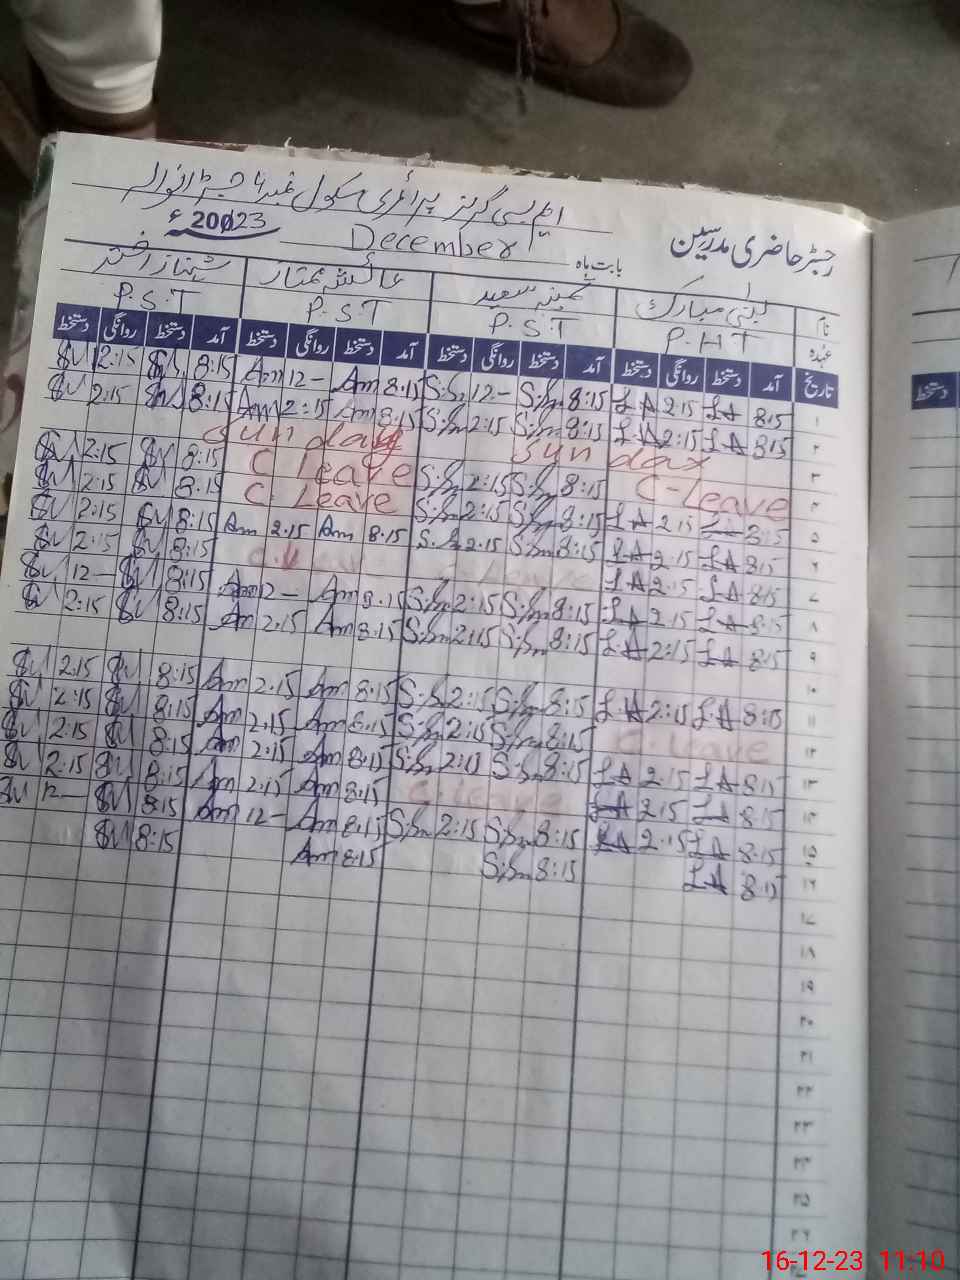 ایم سی گرلز پرائمری سکول نمبر 4 جڑانوالہ
رجسٹر حاضری مدرسین بابت ماہ December 20023ء
نام لبنیٰ مبارک ثمینہ سعید عائش ممتاز شہناز اختر
عہدہ P.H.T P.S.T P.S.T P.S.T
تاریخ آمد دستخط روانگی دستخط آمد دستخط روانگی دستخط آمد دستخط روانگی دستخط آمد دستخط روانگی دستخط
۱ 8:15 LA 2:15 LA 8:15 S:Sm 12- S:Sm 8:15 Am 12- Am 8:15 SU 2:15 SU
۲ 8:15 LA 2:15 LA 8:15 S:Sm 2:15 S:Sm 8:15 Am 2:15 Am 8:15 SU 2:15 SU
۳ Sunday Sunday
۴ C-Leave 8:15 S:Sm 2:15 S:Sm C Leave 8:15 SU 2:15 SU
۵ 8:15 LA 2:15 LA 8:15 S:Sm 2:15 S:Sm C. Leave 8:15 SU 2:15 SU
۶ 8:15 LA 2:15 LA 8:15 S:Sm 2:15 S:Sm 8:15 Am 2:15 Am 8:15 SU 2:15 SU
۷ 8:15 LA 2:15 LA 8:15 SU 2:15 SU
۸ 8:15 LA 2:15 LA 8:15 S:Sm 2:15 S:Sm 8:15 Am 12- Am 8:15 SU 12- SU
۹ 8:15 LA 2:15 LA 8:15 S:Sm 2:15 S:Sm 8:15 Am 2:15 Am 8:15 SU 2:15 SU
۱۰
۱۱ 8:15 LA 2:15 LA 8:15 S:Sm 2:15 S:Sm 8:15 Am 2:15 Am 8:15 SU 2:15 SU
۱۲ C-Leave 8:15 S:Sm 2:15 S:Sm 8:15 Am 2:15 Am 8:15 SU 2:15 SU
۱۳ 8:15 LA 2:15 LA 8:15 S:Sm 2:15 S:Sm 8:15 Am 2:15 Am 8:15 SU 2:15 SU
۱۴ 8:15 LA 2:15 LA C-Leave 8:15 Am 2:15 Am 8:15 SU 2:15 SU
۱۵ 8:15 LA 2:15 LA 8:15 S:Sm 2:15 S:Sm 8:15 Am 12- Am 8:15 SU 12- SU
۱۶ 8:15 LA 8:15 S:Sm 8:15 Am 8:15 SU
۱۷
۱۸
۱۹
۲۰
۲۱
۲۲
۲۳
۲۴
۲۵
۲۶
دستخط
16-12-23 11:10